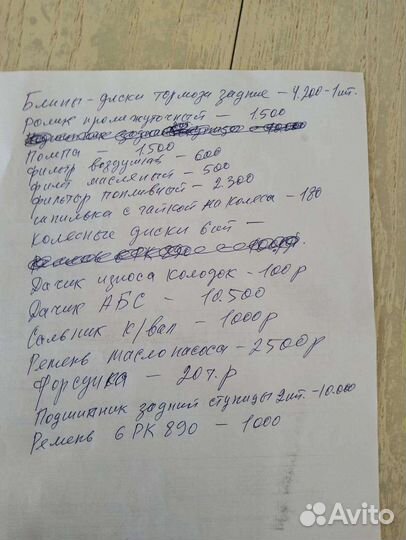 Блины - диски тормоза задние - 4.200-1шт.
Ролик промежуточный - 1500
Помпа - 1500
фильтр воздушн - 600
филт масляный - 500
фильтр топливный - 2.300
шпилька с гайкой на колеса - 180
колесные диски 6шт -
РК 890 - 1000
Дачик износа колодок - 100р
Дачик АБС - 10.500
Сальник к/вал - 1000р
Ремень маслонасоса - 2500р
Форсунка - 20т.р
Подшипник задний ступицы 2шт. - 10.000
Ремень 6РК890 - 1000
Avito